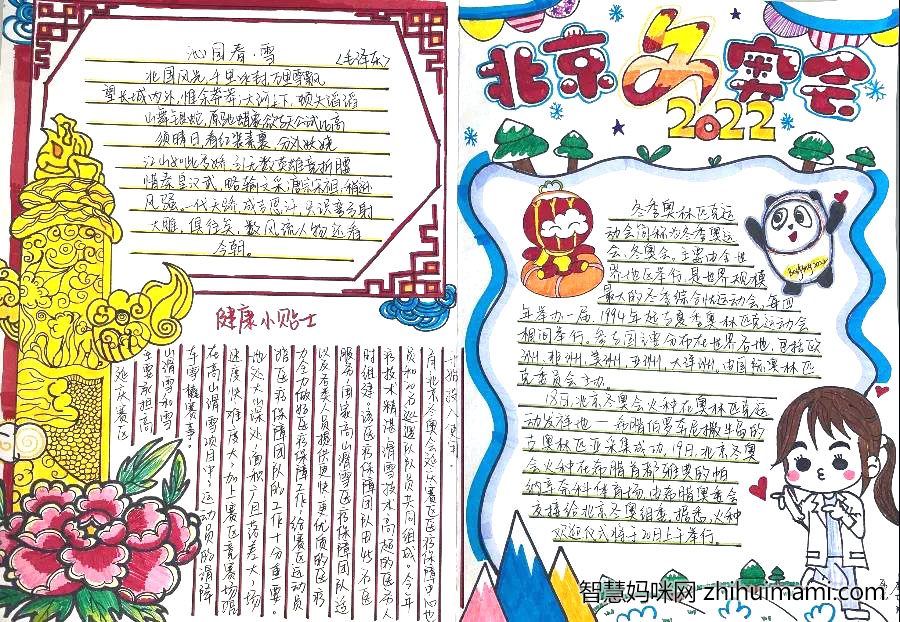 沁园春·雪
〈毛泽东〉
北国风光,千里冰封,万里雪飘
望长城内外,惟余莽莽;大河上下,顿失滔滔
山舞银蛇,原驰蜡象,欲与天公试比高
须晴日,看红装素裹,分外妖娆
江山如此多娇,引无数英雄竞折腰
惜秦皇汉武,略输文采;唐宗宋祖,稍逊
风骚。一代天骄,成吉思汗,只识弯弓射
大雕。俱往矣,数风流人物,还看
今朝。
健康小贴士
延庆赛区
主要承担高
山滑雪和雪
车雪橇赛事。
在高山滑雪项目中,运动员的滑降
速度快,难度大,加上赛区竞赛场馆
地处大山深处,面积广且落差大,场
医疗保障团队的工作十分重要。
力全力做好医疗保障工作,给赛区运动员
以及各类人员提供更快更优质的医疗
服务,国家高山滑雪医疗保障团队适
时组建。该医疗保障团队由45名医
疗技术精湛、滑雪技术高超的医务人
员和50名巡逻队员共同组成。今年
北京冬奥会延庆赛区医疗保障中心也
将投入使用。
北京冬奥会
2022
冬季奥林匹克运
动会简称为冬季奥运
会、冬奥会。主要由全世
界地区举行,是世界规模
最大的冬季综合性运动会,每四
年举办一届,1994年起与夏季奥林匹克运动会
相间举行。参与国主要分布在世界各地,包括欧
洲、非洲、美洲、亚洲、大洋洲。由国际奥林匹
克委员会主办。
18日,北京冬奥会火种在奥林匹克运
动发祥地——希腊伯罗奔尼撒半岛的
古奥林匹亚采集成功,19日,北京冬奥
会火种在希腊首都雅典的帕
纳辛奈科体育场,由希腊奥委会
交接给北京冬奥组委。据悉,火种
欢迎仪式将于20日上午举行。
智慧妈咪网 zhihuimami.com